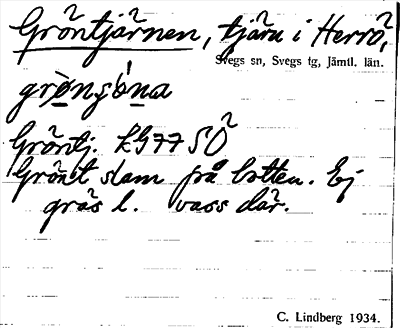 Gröntjärnen, tjärn i Herrö,
Svegs sn, Svegs tg, Jämtl. län.
Gröntj. LG77 SÖ
Grönt slam på botten. Ej
gräs l. vass där.
C. Lindberg 1934.